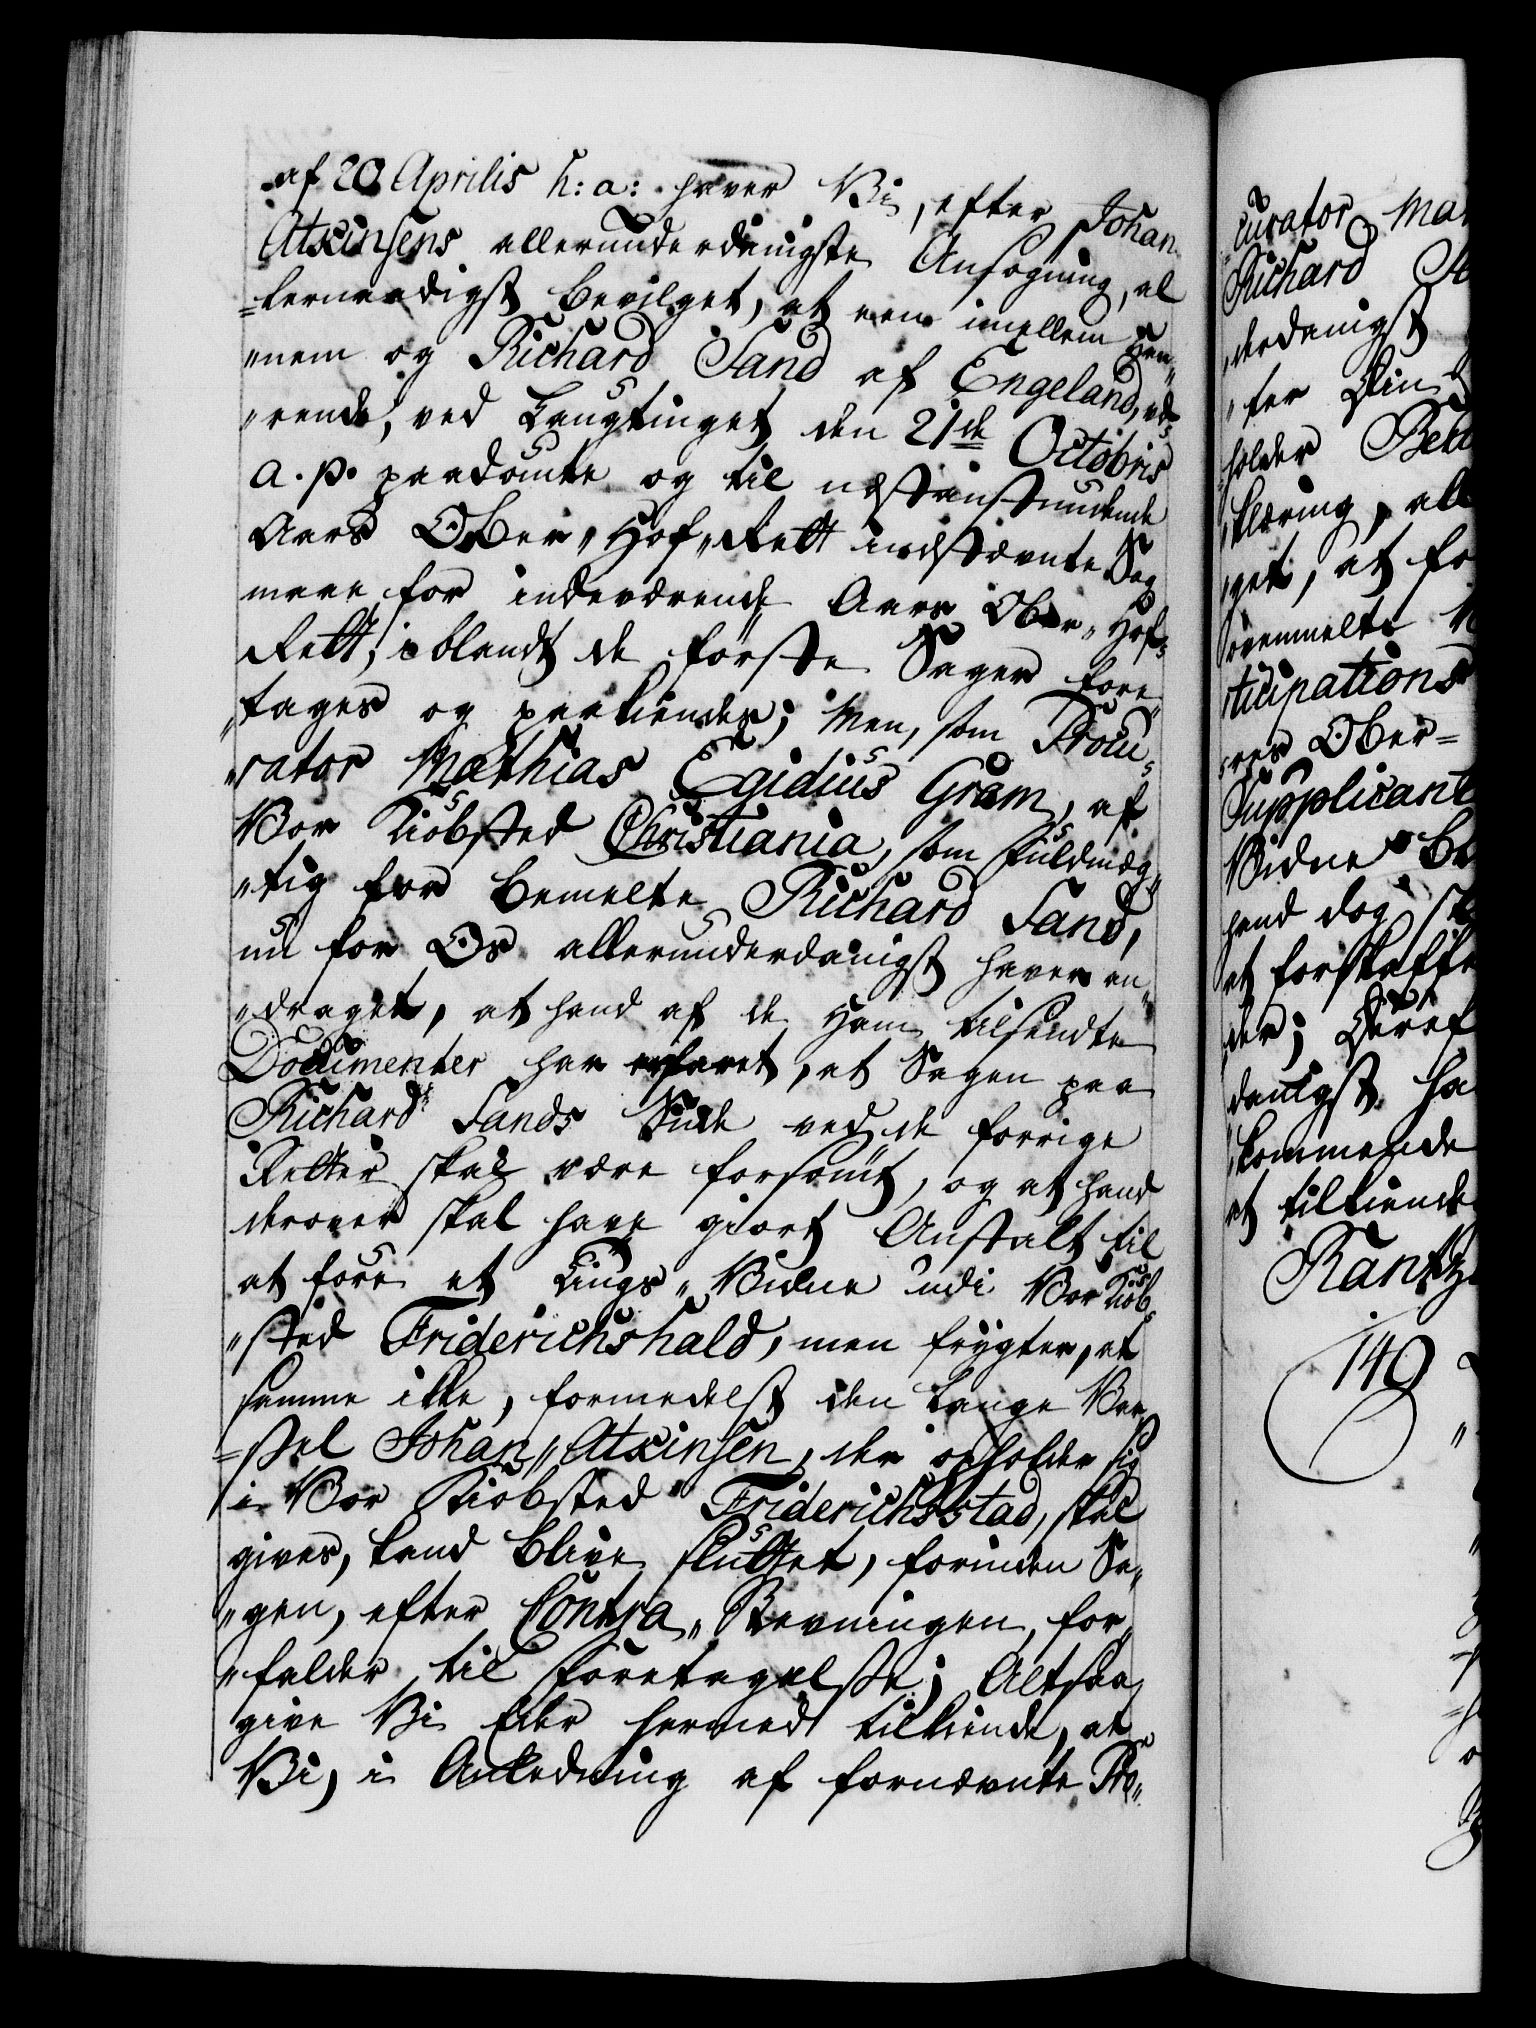 af 20 Aprilis h: a: haver Vi, efter Johan
Atkinsens allerunderdanigste Ansögning, al
=lernaadigst bevilget, at een imellem Han„
„nem og Richard Sand af Engeland, væ„
„rende, ved Laugtinget den 21de Octobris
a. p. paadömte og til næstanstundende
Aars Ober„Hof„Rett indstævnte Sag
maae for indeværende Aars Ober„Hof„
Rett, iblandt de förste Sager fore„
„tages og paakiendes; Men, som Procu„
„rator Mathias Egidius Gram, af
Vor Kiöbsted Christiania, som fuldmæg„
„tig for bemelte Richard Sand,
nu for Os allerunderdanigst haver an„
„draget, at hand af de Ham tilsendte
Documenter har erfaret, at Sagen paa
Richard Sands Side ved de forrige
Retter skal være forsömt, og at hand
derover skal have giort Anstalt til
at före et Tings„Vidne udi Vor Kiöb„
„sted Friderichshald, men frygter, at
samme ikke, formedelst den lange Var„
=sel Johan Atkinsen, der opholder sig
i Vor Kiöbsted Friderichsstad, skal
gives, kand blive sluttet, forinden Sa„
„gen, efter Contra„Stevningen, for„
„falder til Foretagelse; Altsaa
give Vi Eder hermed tilkiende, at
Vi, i Anledning af fornævnte Pro„
curator Mat
Richard
derdanigst
ter Din
holder
klæring, all
get, at fo
ovenmelte
ticipations
res Ober=
Supplicant
Vidne bl
hand dog
at forskaffe
der; Deref
danigst ha
kommende
at tilkiende
Rantz
140